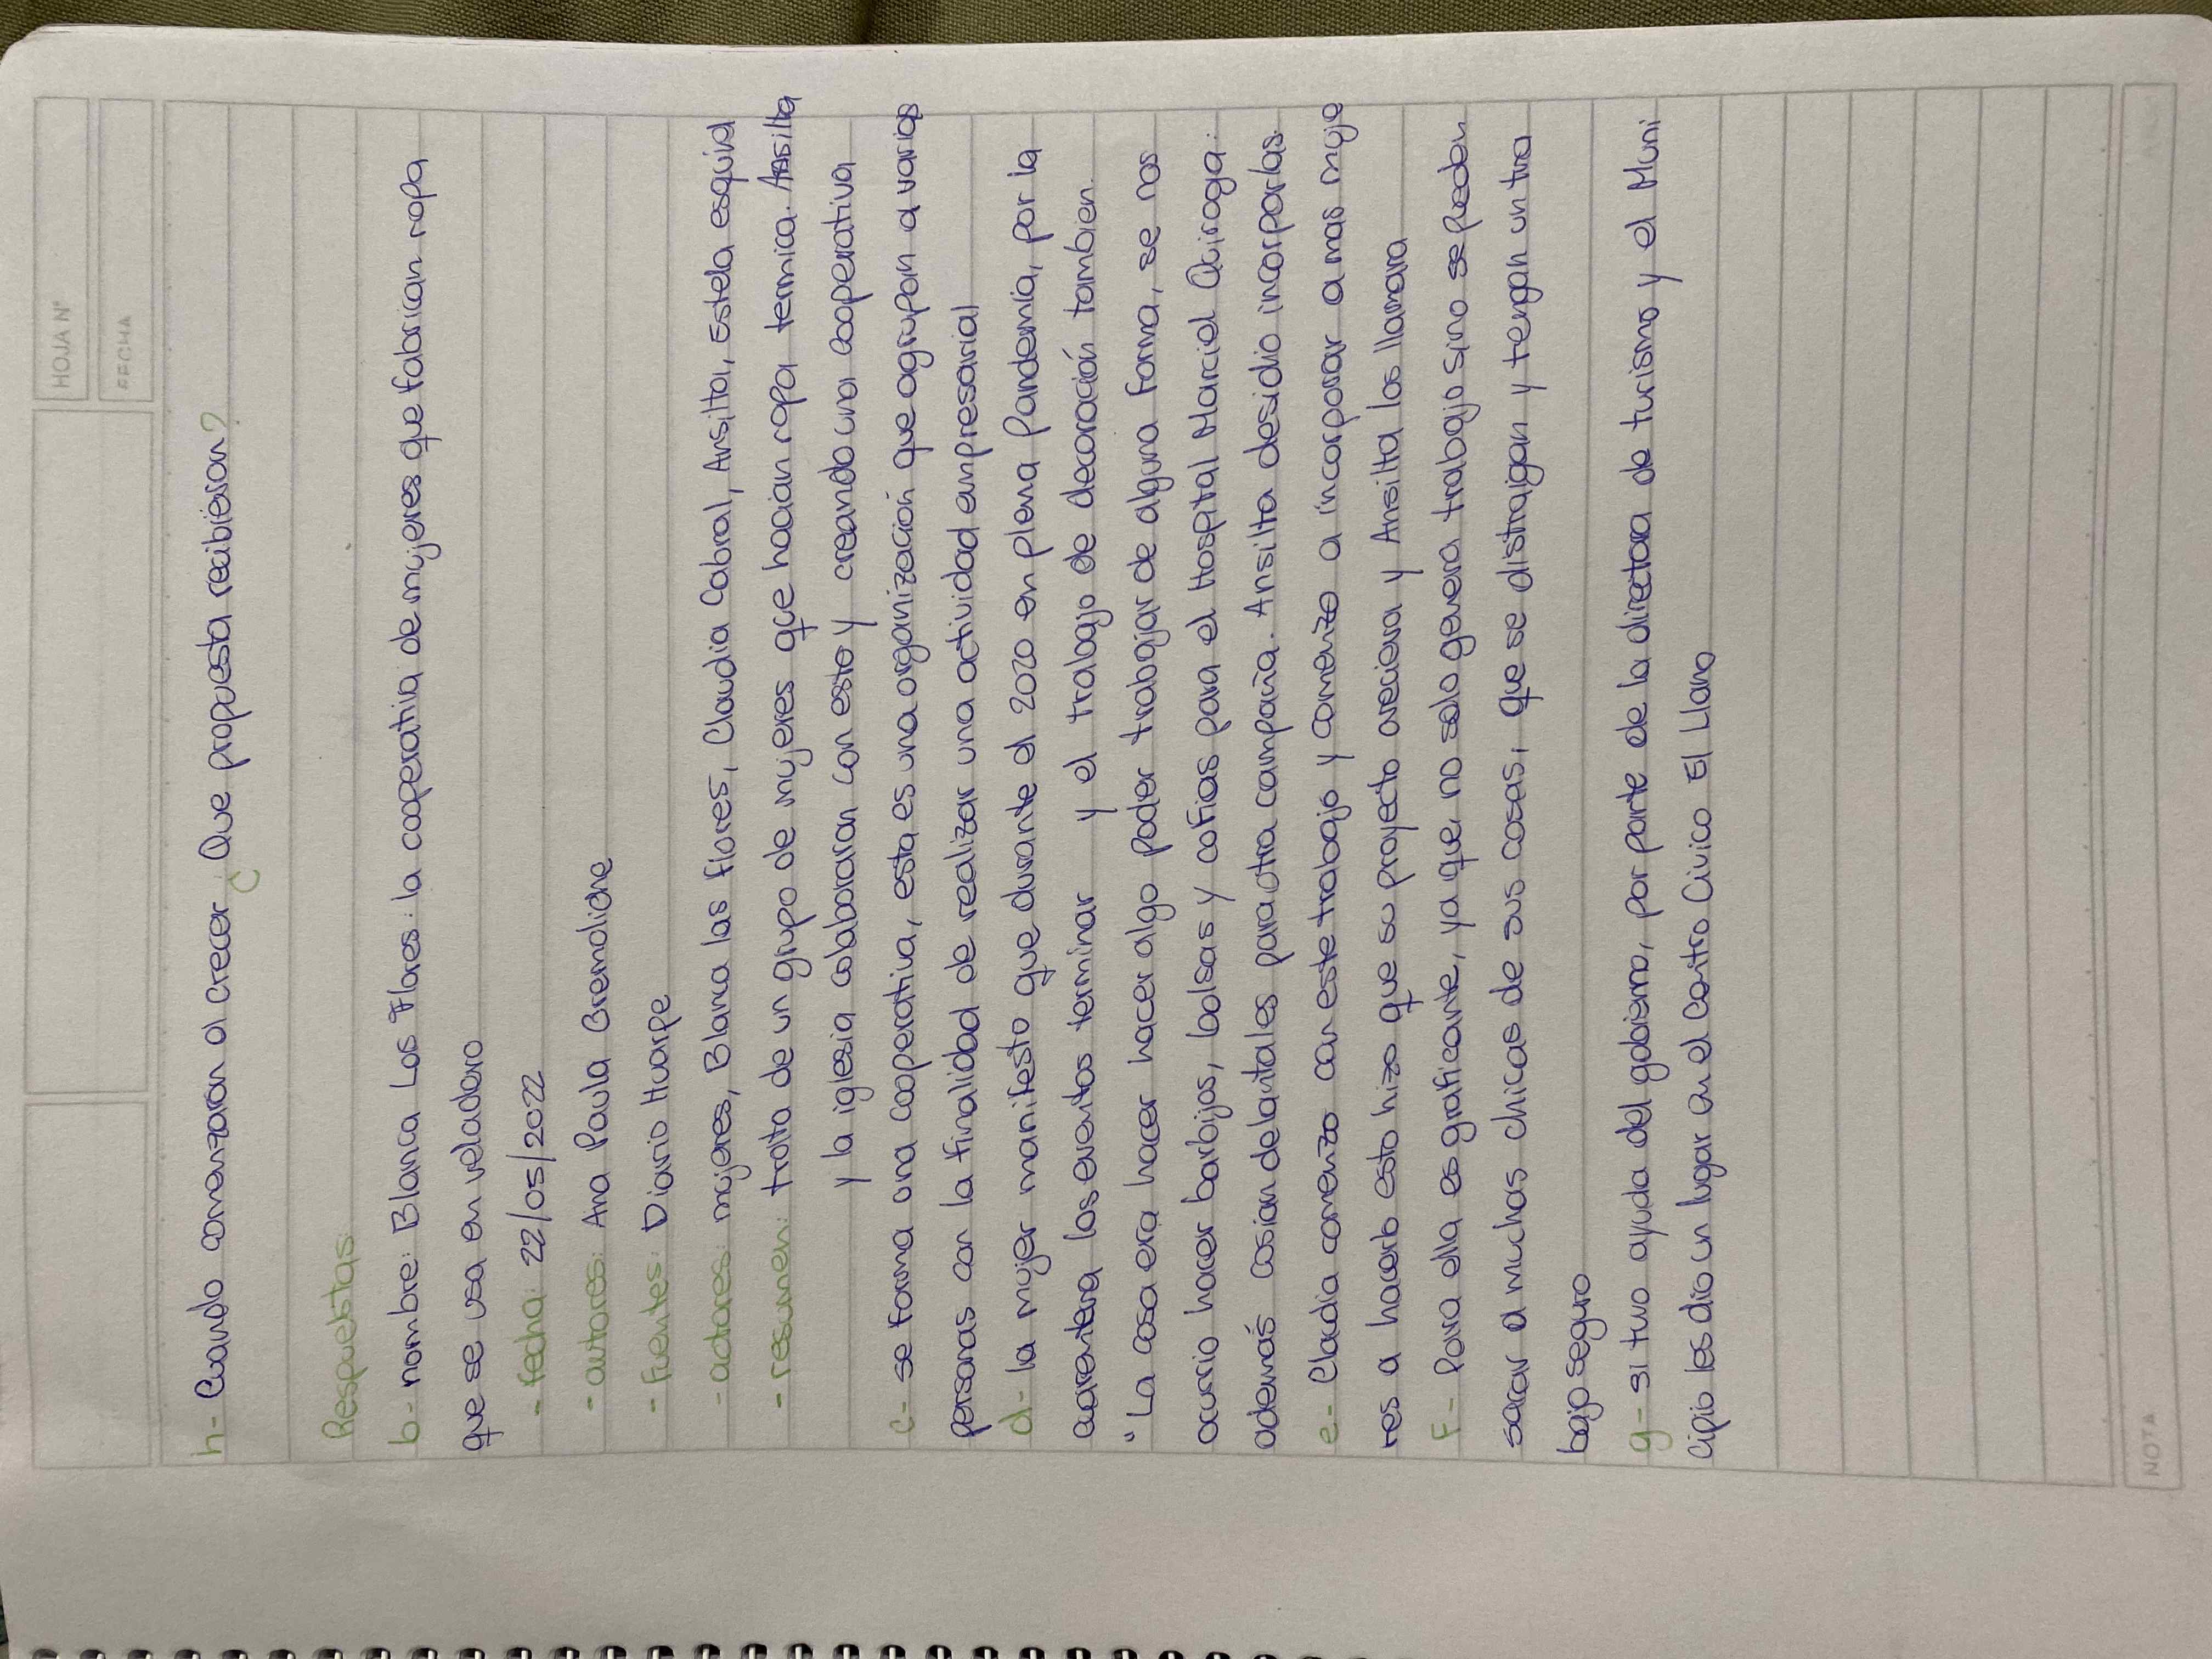 HOJA N°
FECHA
h- Cuando comenzaron a crecer ¿Que propuesta recibieron?
Respuestas:
b- nombre: Blanca Las Flores: la cooperativa de mujeres que fabrican ropa
que se usa en veladero
- fecha: 22/05/2022
- autores: Ana Paula Gremoliche
- Fuentes: Diario Huarpe
- actores: mujeres, Blanca las flores, Claudia Cabral, Ansilta, Estela esquivel
- resumen: trata de un grupo de mujeres que hacian ropa termica. Ansilta
y la iglesia colaboraron con esto y creando una cooperativa
c- se forma una cooperativa, esta es una organización que agrupan a varias
personas con la finalidad de realizar una actividad empresarial
d- la mujer manifesto que durante el 2020 en plena Pandemia, por la
cuarentena los eventos terminar y el trabajo de decoración tambien.
"La cosa era hacer hacer algo poder trabajar de alguna forma, se nos
ocurrio hacer barbijos, bolsas y cofias para el Hospital Marcial Quiroga.
además cosian delantales para otra campaña. Ansilta desidio incorporarlas.
e- Claudia comenzo con este trabajo y comenzo a incorporar a mas muje
res a hacerlo esto hizo que su proyecto creciera y Ansilta los llamara
F- Para ella es graficante, ya que, no solo genera trabajo sino se pueden
sacar a muchas chicas de sus cosas, que se distraigan y tengan un tra
bajo seguro
g- si tuvo ayuda del gobierno, por parte de la directora de turismo y el Muni
cipio les dio un lugar en el centro Civico El Llano
NOTA